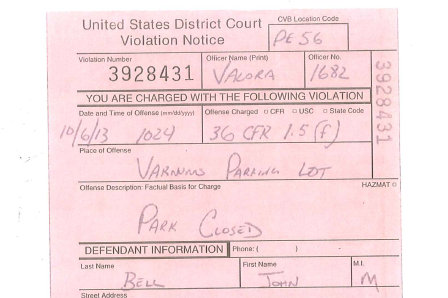 United States District Court
Violation Notice
CVB Location Code
PE56
Violation Number
3928431
Officer Name (Print)
VALORA
Officer No.
1682
3928431
YOU ARE CHARGED WITH THE FOLLOWING VIOLATION
Date and Time of Offense (mm/dd/yyyy)
10/6/13 1024
Offense Charged □ CFR □ USC □ State Code
36 CFR 1.5 (f)
Place of Offense
VARNUMS PARKING LOT
Offense Description: Factual Basis for Charge
HAZMAT □
PARK CLOSED
DEFENDANT INFORMATION
Phone: ( )
Last Name
BELL
First Name
JOHN
M.I.
M
Street Address